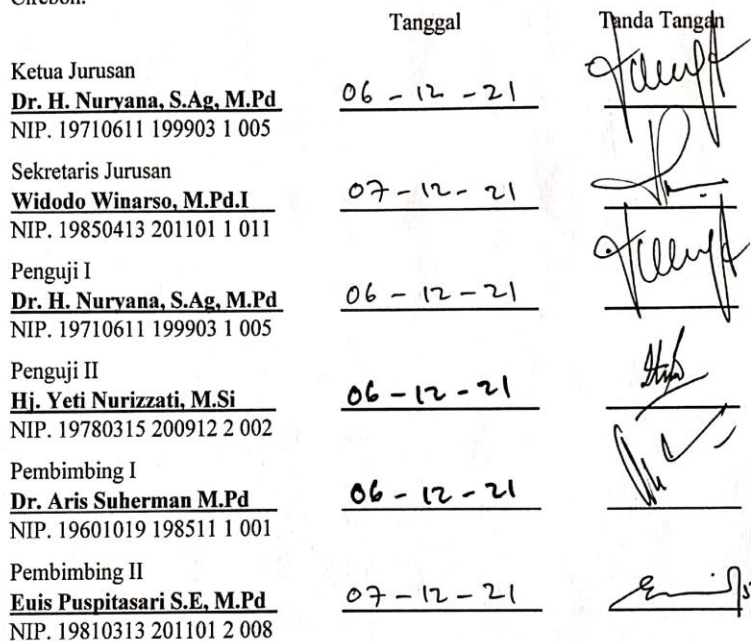 Cirebon.
Tanggal Tanda Tangan
Ketua Jurusan
Dr. H. Nuryana, S.Ag, M.Pd 06 - 12 - 21
NIP. 19710611 199903 1 005
Sekretaris Jurusan
Widodo Winarso, M.Pd.I 07 - 12 - 21
NIP. 19850413 201101 1 011
Penguji I
Dr. H. Nuryana, S.Ag, M.Pd 06 - 12 - 21
NIP. 19710611 199903 1 005
Penguji II
Hj. Yeti Nurizzati, M.Si 06 - 12 - 21
NIP. 19780315 200912 2 002
Pembimbing I
Dr. Aris Suherman M.Pd 06 - 12 - 21
NIP. 19601019 198511 1 001
Pembimbing II
Euis Puspitasari S.E, M.Pd 07 - 12 - 21
NIP. 19810313 201101 2 008